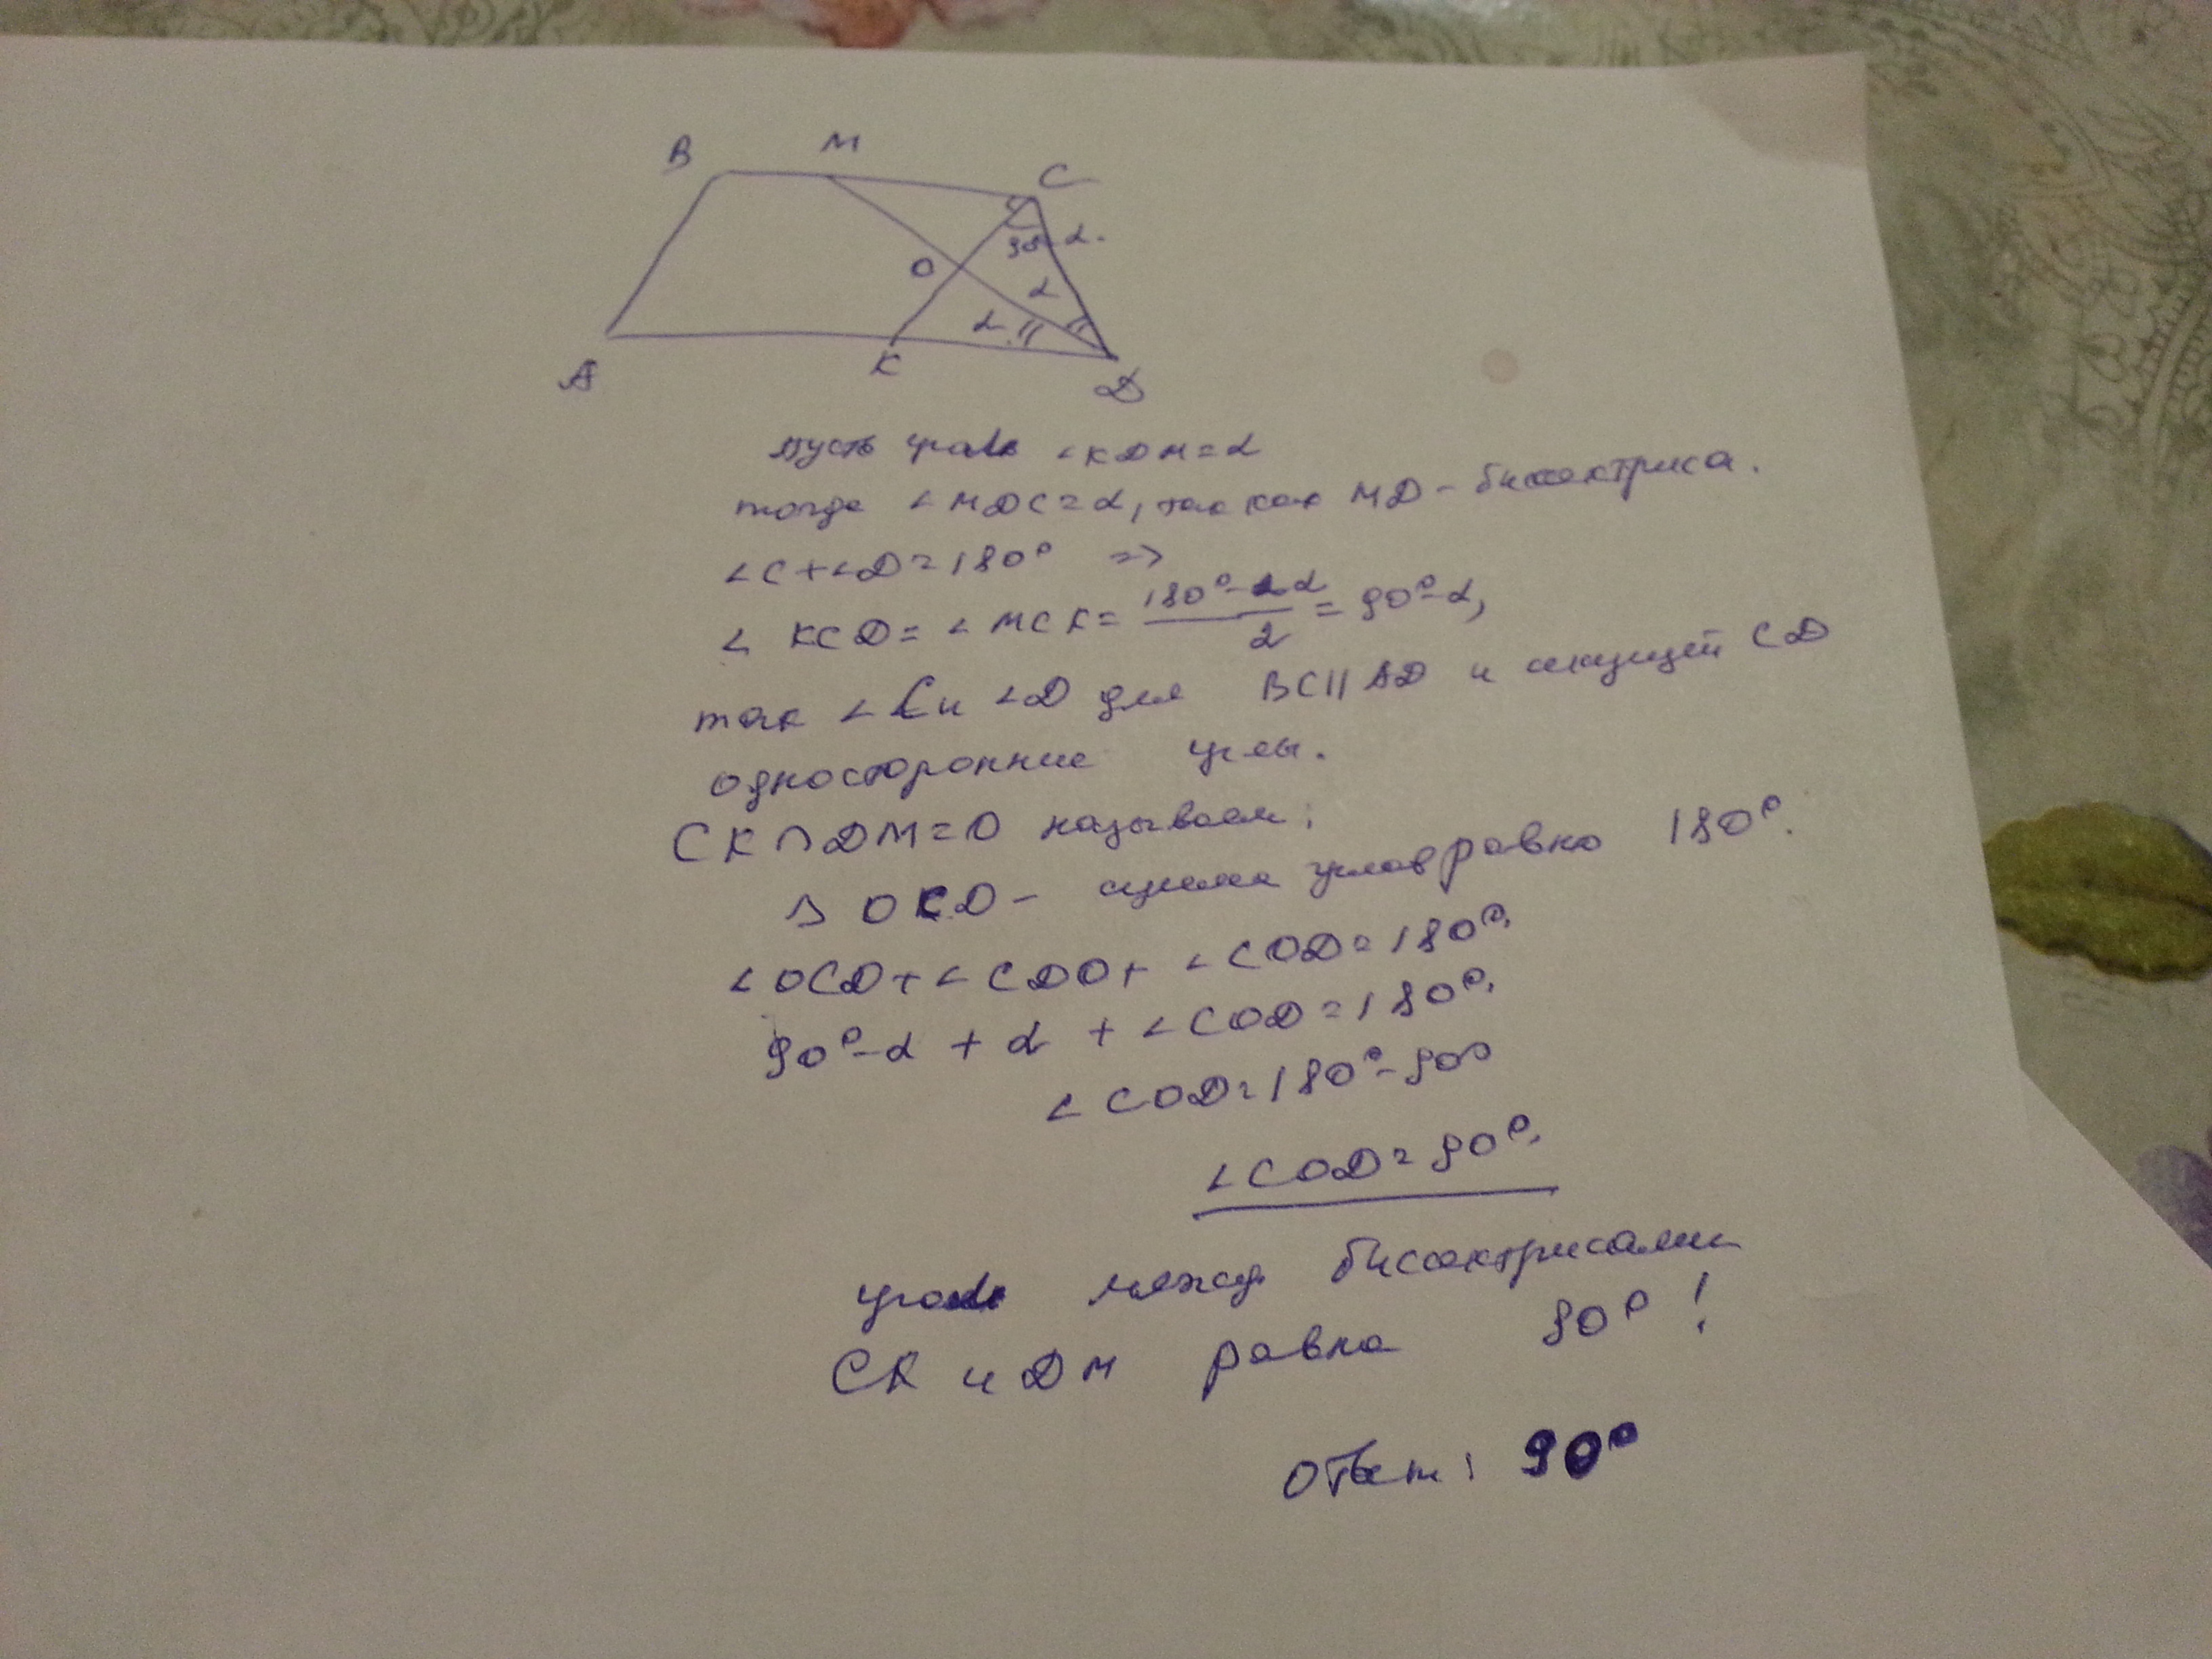 B M C
90-α.
O α
α
A K D
пусть угол ∠KDM=α
тогда ∠MDC=α, так как MD - биссектриса.
∠C+∠D=180° =>
∠KCD=∠MCK=\frac{180°-2α}{2}=90°-α,
так ∠C и ∠D для BC||AD и секущей CD
односторонние углы.
CK∩DM=O называем;
△OCD - сумма углов равно 180°.
∠OCD+∠CDO+∠COD=180°.
90°-α+α+∠COD=180°.
∠COD=180°-90°
∠COD=90°.
угол между биссектрисами
CK и DM равна 90°!
Ответ: 90°